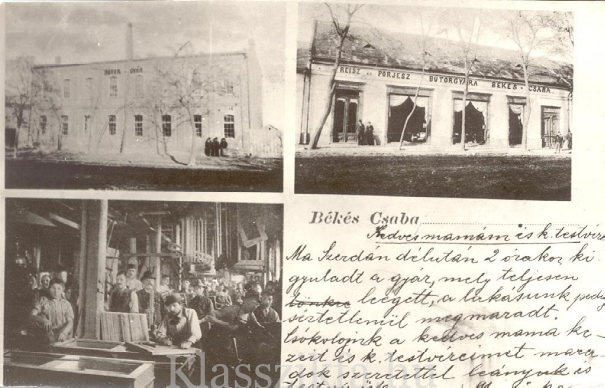 BUTOR GYÁR
REISZ és PORJESZ BUTORGYÁRA BÉKÉS-CSABA
Békés Csaba
Kedves mamám és k. testvére
Ma Szerdán délután 2 órakor ki
gyuladt a gyár, mely teljesen
leégett, a lakásunk pedig
sértetlenül megmaradt.
kedves mama ke
zeit és k. testvéreimet mara
dok szeretettel leányuk és
Klassz